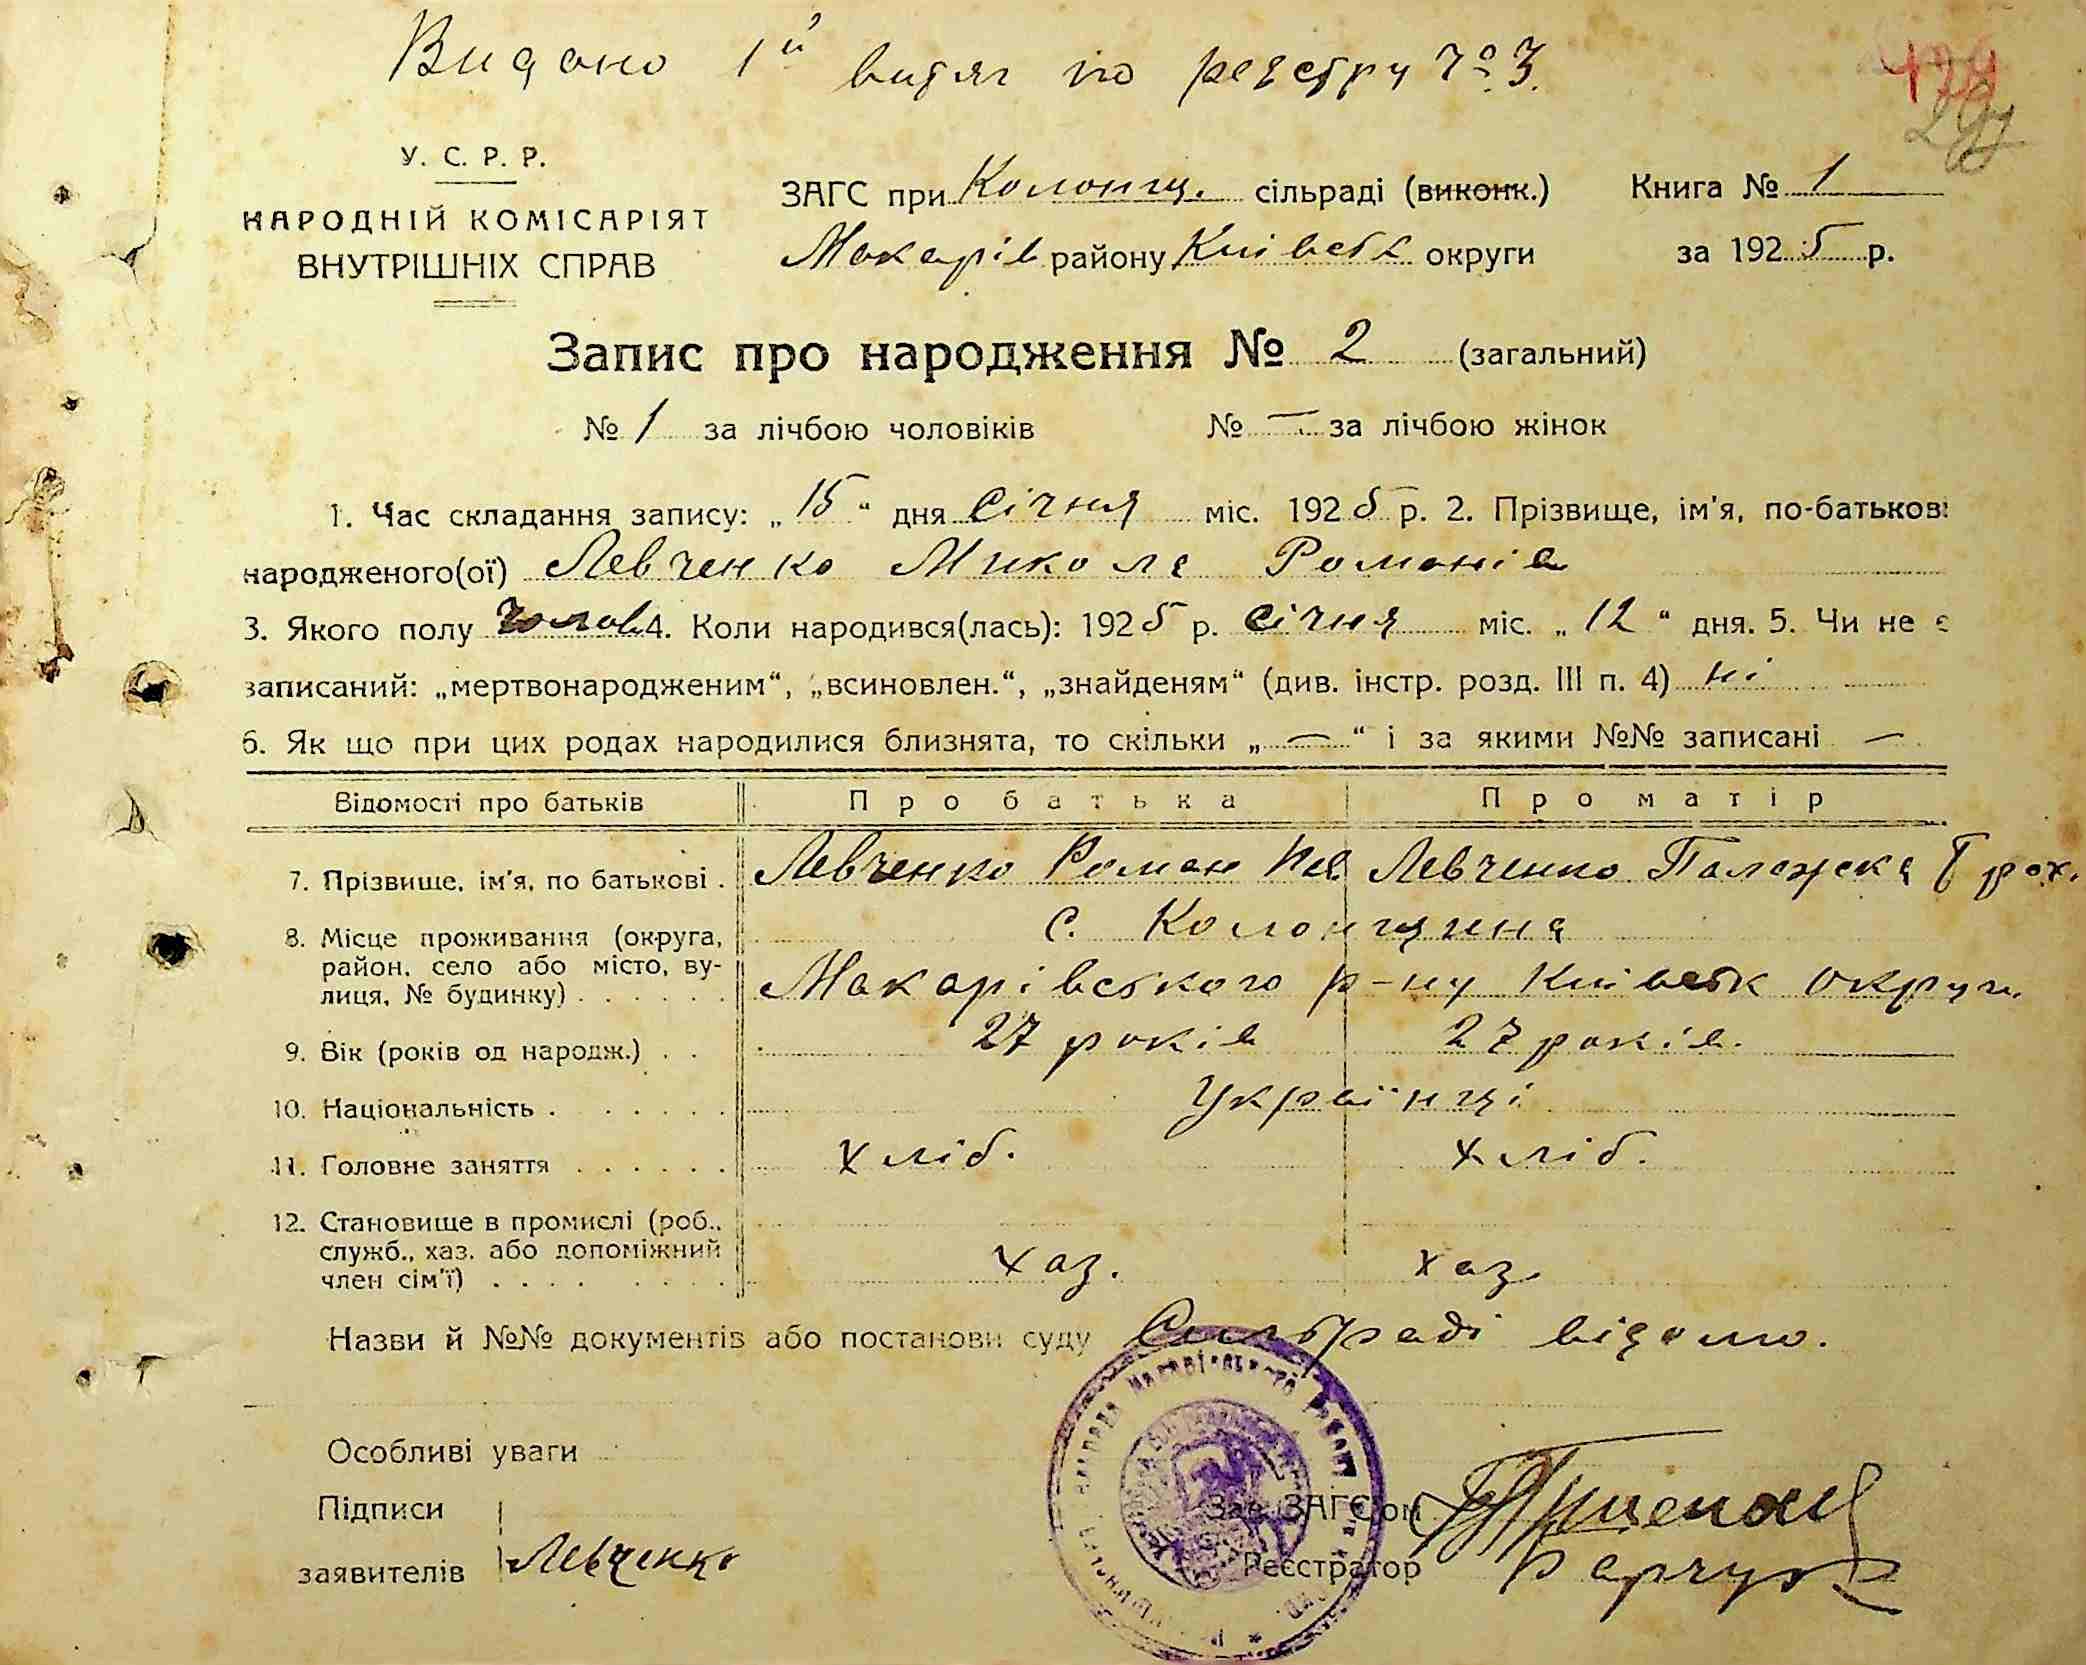 Видано 1й витяг по реєстру № 3.
У. С. Р. Р.
НАРОДНІЙ КОМІСАРІЯТ
ВНУТРІШНІХ СПРАВ
ЗАГС при Колонщ. сільраді (виконк.) Книга № 1
Макарів району Київськ округи за 1925 р.
Запис про народження № 2 (загальний)
№ 1 за лічбою чоловіків № — за лічбою жінок
1. Час складання запису: „15“ дня січня міс. 1925 р. 2. Прізвище, ім'я, по-батькові
народженого(ої) Левченко Микола Романів
3. Якого полу чолов. 4. Коли народився(лась): 1925 р. січня міс. „12“ дня. 5. Чи не є
записаний: „мертвонародженим“, „всиновлен.“, „знайденям“ (див. інстр. розд. III п. 4) ні
6. Як що при цих родах народилися близнята, то скільки „—“ і за якими №№ записані —
Відомості про батьків Про батька Про матір
7. Прізвище, ім'я, по батькові . Левченко Роман Левченко Палажка Трох.
8. Місце проживання (округа, с. Колонщина
район, село або місто, ву-
лиця, № будинку) . . . . . . Макарівського р-ну Київськ округи
9. Вік (років од народж.) . . 27 років 27 років.
10. Національність . . . . . . . Українці
11. Головне заняття . . . . . . хліб. хліб.
12. Становище в промислі (роб.,
служб., хаз. або допоміжний
член сім'ї) . . . . . . . . . хаз. хаз.
Назви й №№ документів або постанови суду Сильраді відомо.
Особливі уваги
Підписи Зав. ЗАГС'ом
заявителів Левченко Реєстратор